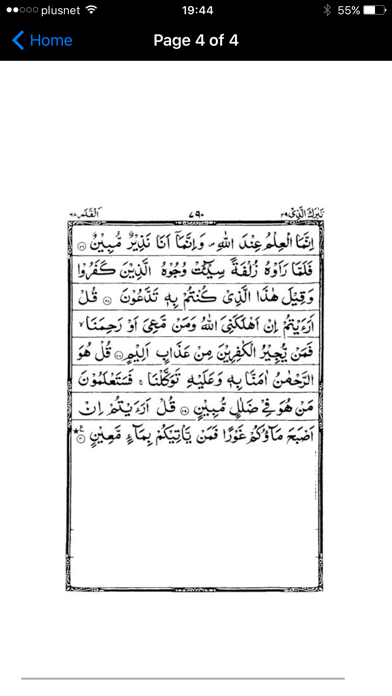 plusnet 19:44 55%
Home Page 4 of 4
تبٰرك الذی ٢٩ ٧٩٠ القلم ٦٨
اِنَّمَا الْعِلْمُ عِنْدَ اللّٰهِ ۪ وَاِنَّمَاۤ اَنَا نَذِيْرٌ مُّبِيْنٌ ۝٢٦
فَلَمَّا رَاَوْهُ زُلْفَةً سِيْٓـَٔتْ وُجُوْهُ الَّذِيْنَ كَفَرُوْا
وَقِيْلَ هٰذَا الَّذِيْ كُنْتُمْ بِهٖ تَدَّعُوْنَ ۝٢٧ قُلْ
اَرَءَيْتُمْ اِنْ اَهْلَكَنِيَ اللّٰهُ وَمَنْ مَّعِيَ اَوْ رَحِمَنَا ۙ
فَمَنْ يُّجِيْرُ الْكٰفِرِيْنَ مِنْ عَذَابٍ اَلِيْمٍ ۝٢٨ قُلْ هُوَ
الرَّحْمٰنُ اٰمَنَّا بِهٖ وَعَلَيْهِ تَوَكَّلْنَا ۚ فَسَتَعْلَمُوْنَ
مَنْ هُوَ فِيْ ضَلٰلٍ مُّبِيْنٍ ۝٢٩ قُلْ اَرَءَيْتُمْ اِنْ
اَصْبَحَ مَآؤُكُمْ غَوْرًا فَمَنْ يَّاْتِيْكُمْ بِمَآءٍ مَّعِيْنٍ ۝٣٠